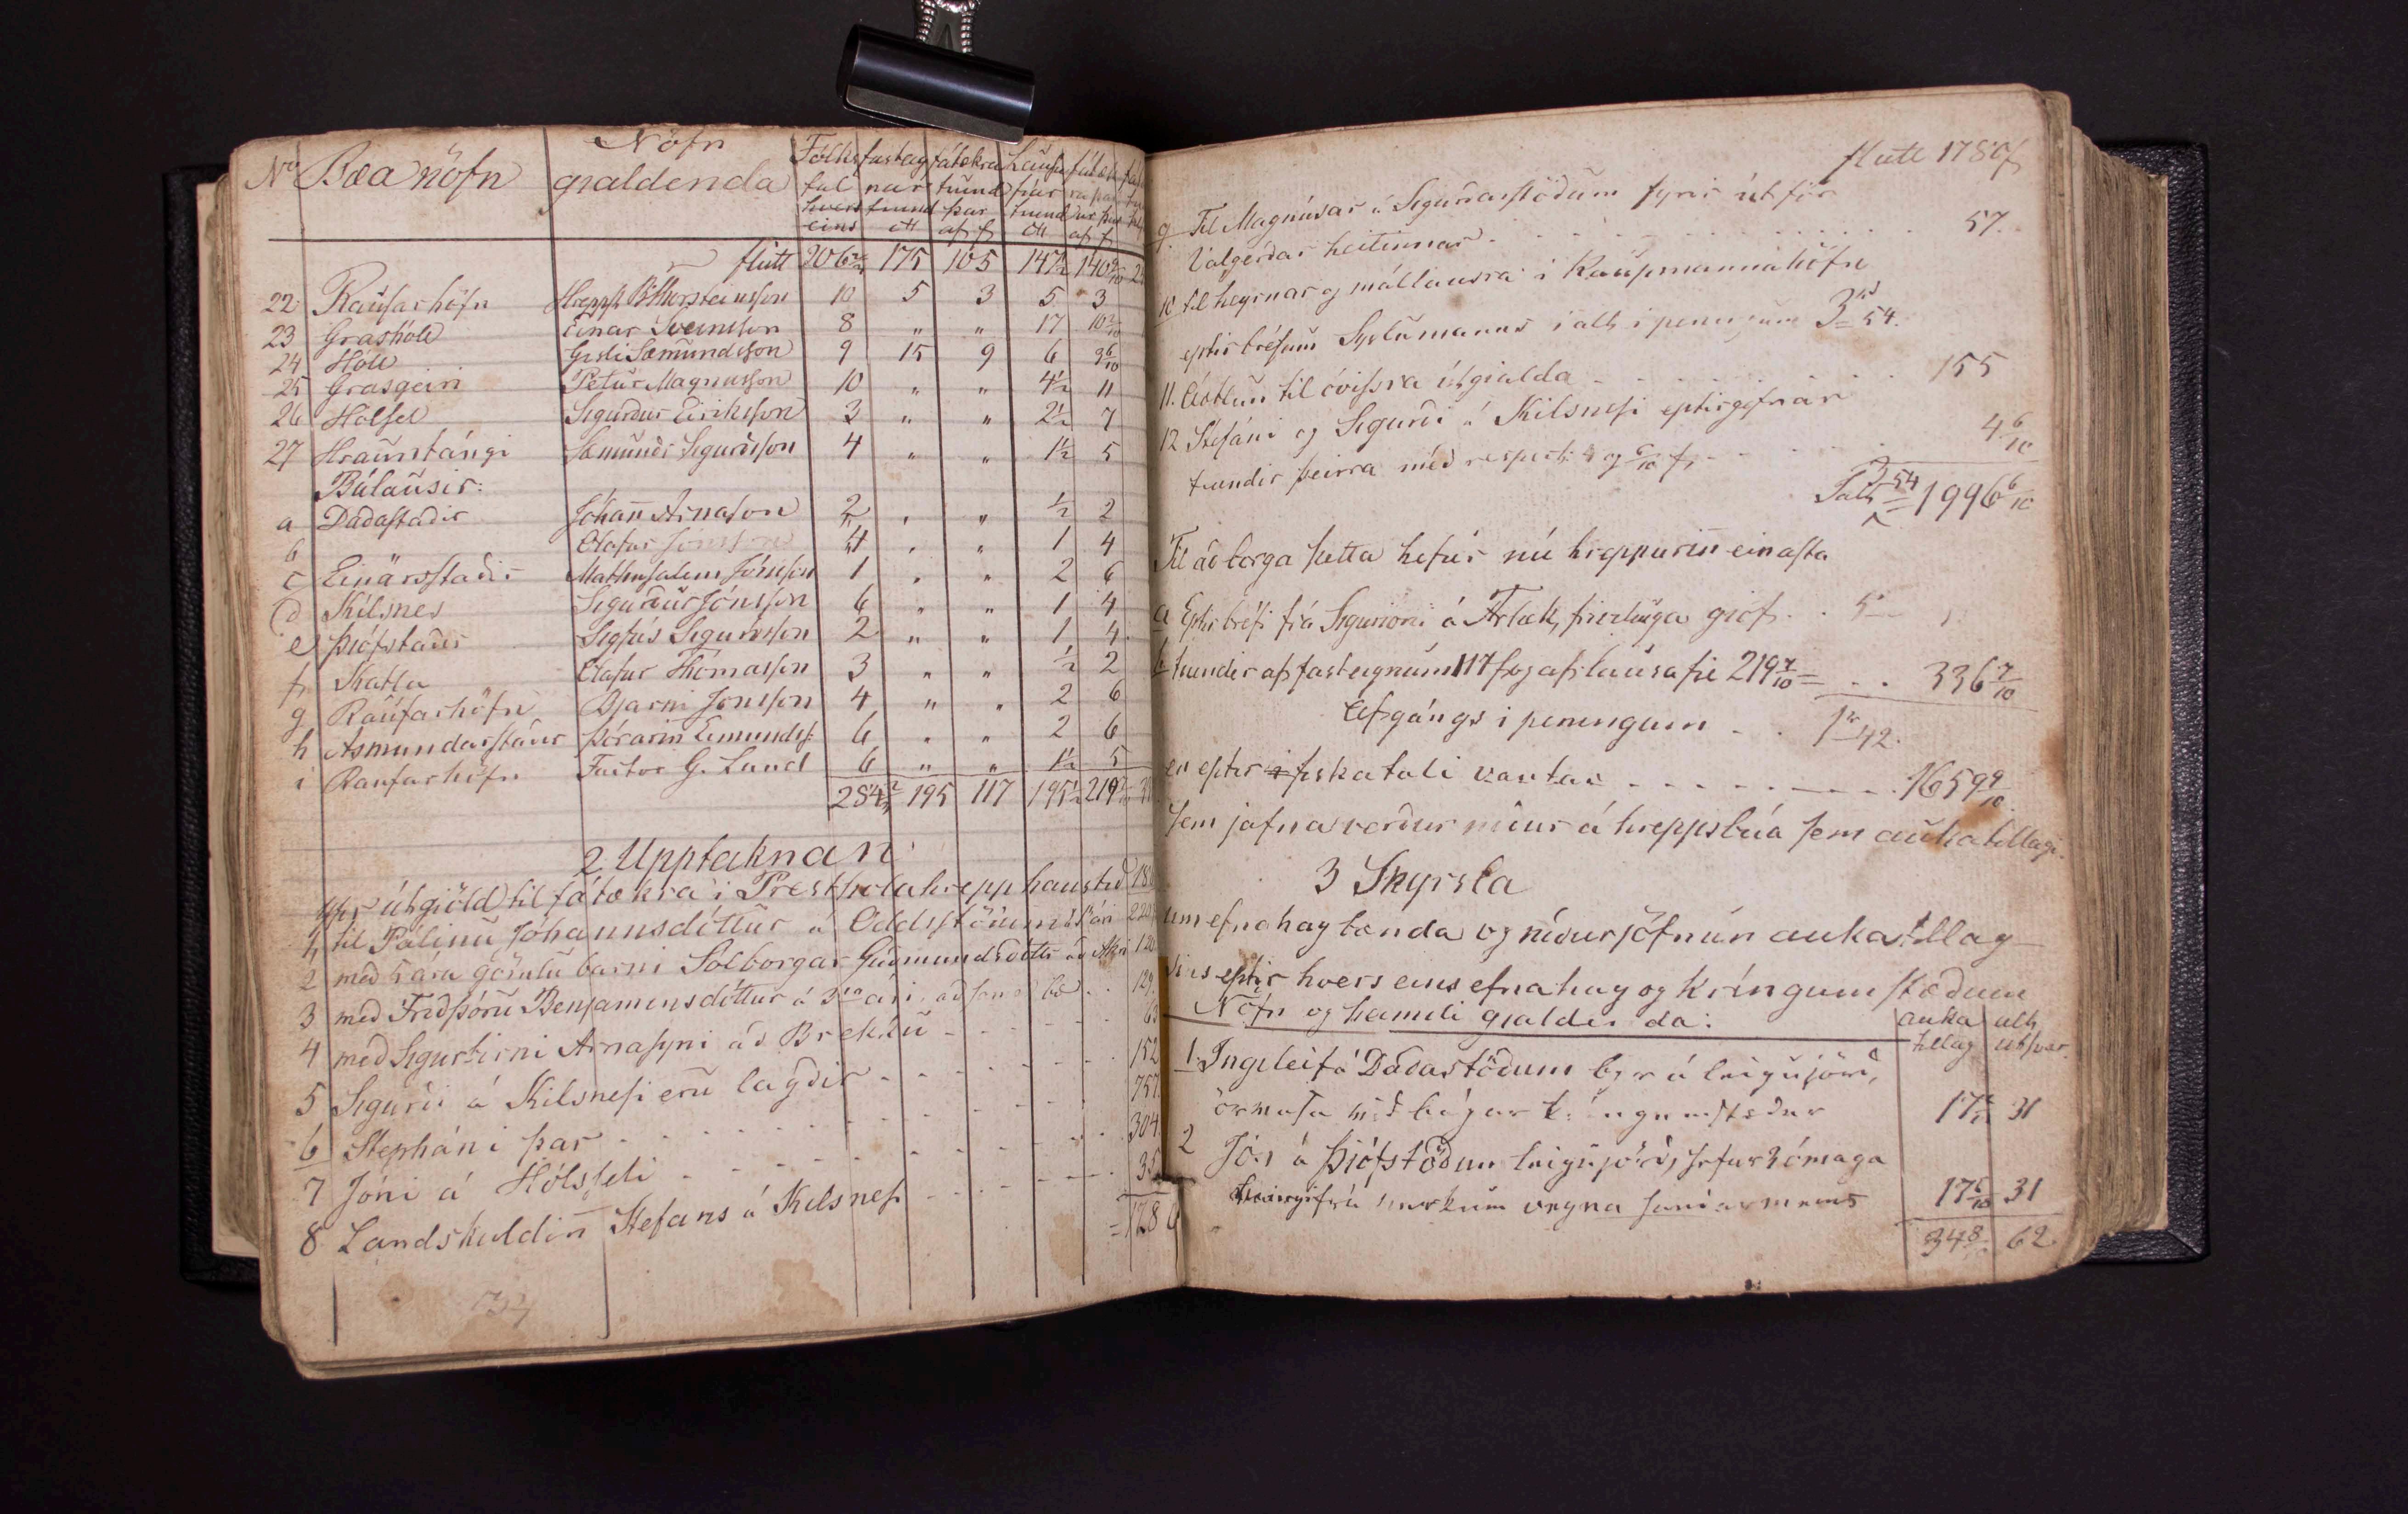 No Bæa nöfn Nöfn gialdenda Fólks tal hvers eins fasteignar tiund ött fátækra tiund þar af f Lausafiár tiund ött
flutt 206 175 105 147½
22 Raufarhöfn Hreppst B Thorsteinsson 10 5 3 5 3
23 Grashóll Einar Sveinsson 8 " " 17 10 2/10
24 Hóll Gisli Sæmundsson 9 15 9 6 3 6/10
25 Grasgeiri Petur Magnusson 10 " " 4½ 11
26 Hólsel Sigurdur Eiriksson 3 " " 2½ 7
27 Hrauntángi Sæmundr Sigurdsson 4 " " 1½ 5
Búlausir:
a Dadastadir Jóhan Arnason 2 " " ½ 2
b Olafur Jonsson 4 " " 1 4
c Einarsstadir Mathusalem Jónsson 1 " " 2 6
d Kilsnes Sigurdur Jónsson 6 " " 1 4
e Þiófstadir Sigfús Sigurdsson 2 " " 1 4
f Katla Olafur Thomasson 3 " " ½ 2
g Raufarhöfn Bjarni Jonsson 4 " " 2 6
h Asmundarstadir Þórarin 6 " " 2 6
i Raufarhöfn Factor G. Lund 6 " " 1½ 5
195 117 195½
2 Upptaknan
yfir útgiöld til fátækra i Presthólahrepp haustid
1 til Pálinu Jóhannsdóttur á Oddsstödum
2 med gömlu barni Solborgar Gudmundsdóttr
3 med Fridþóru Benjamensdóttur á 3 ári
4 med Sigurbirni Arnasyni ad Brekku - - - 63
5 Sigurdi á Kilsnesi eru lagdir - - - 152
6 Stepháni þar - - - 757
7 Jóni á Hólsseli - - - 304
8 Landskuldin Stefans á Kilsnesi - - - 35
flutt 1780 f
9 Til Magnúsar á Sigurdarstödum fyrir útför
Valgerdar heitinnar - - - 57.
10 til heyrnar og mállausra i Kaupmannahöfn
eptir bréfum Syslumanns i alls i peningum 3 rd 54.
11. Áætlun til óvissra útgialda - - - 155
12 Stefáni og Sigurdi á Kilsnesi eptirgefnar
tiundir þeirra med respect: 4 og 6/10 f, - - - 4 6/10
Talls 3 54 1996 6/10
Til ad borga þetta hefur nú hreppurin einasta
a Eptir bréfi frá Sigurioni á Ærlæk, giöf . . 5
b tiundir af fasteignum 117 f og af lausafie 219 7/10 = . . 336 7/10
Afgángs i peningum . . 1 r 42.
en eptir fiskatali vantar - - - 1659 9/10
sem jafna verdur nidur á hreppsbúa sem aukatillagi.
3 Skyrsla
um efnahag bænda og nidurjöfnun aukatillag
sins eptir hvers eins efnahag og kringumstædum
Nöfn og heimili gjaldenda: auka tillag alls útsvar
1. Ingileif á Dadastödum byr á leigujörd,
17 31
2 Jón á Þiófstödum leigujörd, hefur 3 ómaga
vegna 17 6/10 31
34 8 62